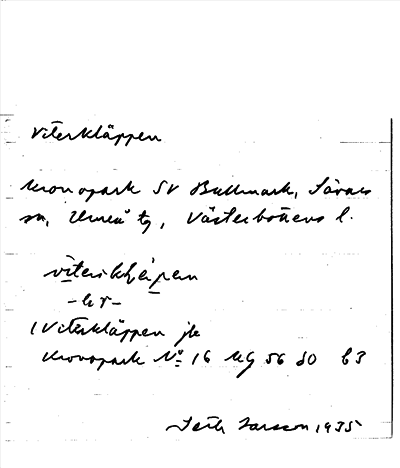 Viterkläppen
Kronopark SV Bullmark, Sävars
sn, Umeå tg, Västerbottens l.
-er-
(Viterkläppen jb
Kronopark No 16 Kg 56 80 63
Larsson 1935